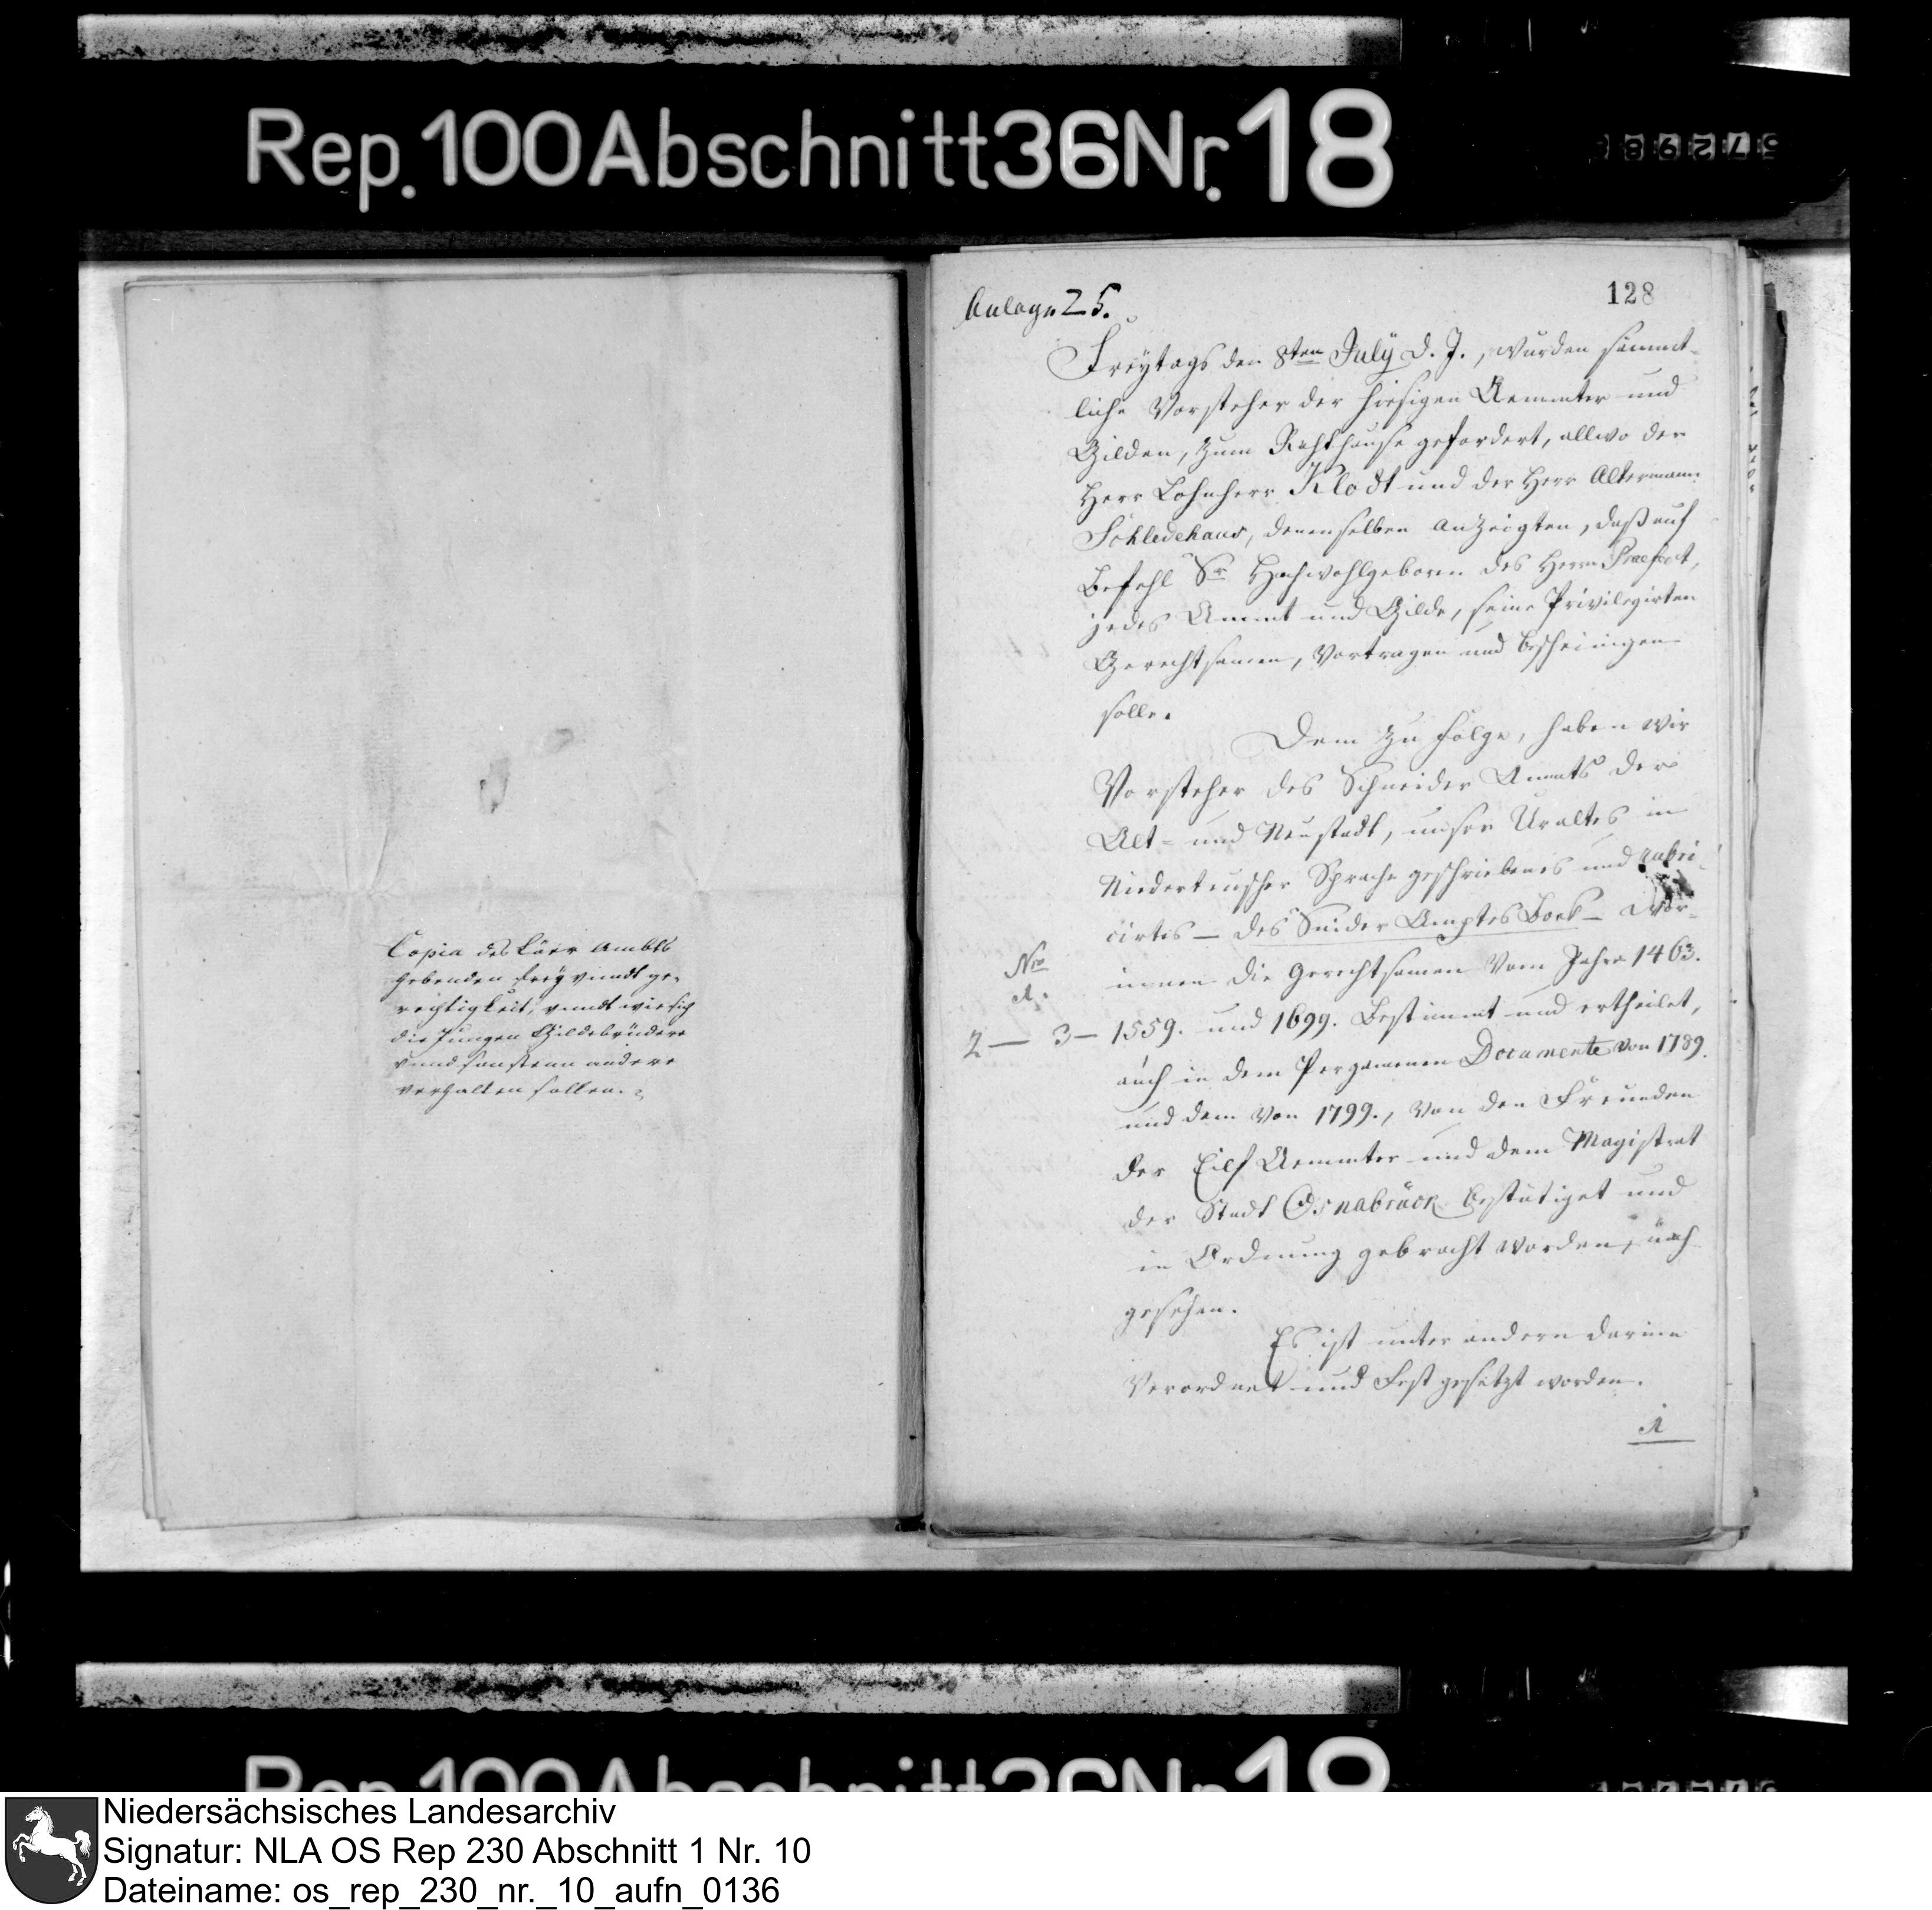 Rep. 100 Abschnitt 36 Nr. 18
572983
Copia des Löer Ambtes
gebenden freÿ vnndt ge-
rechtigkeit, vnndt wie sich
die Jungen Gildebrüdere
vnnd sonstenn andere
verhalten sollen.
128
Anlage 25.
Freÿtags den 8ten Julÿ d. J., wurden sämmt-
liche Vorsteher der hiesigen Aemmter und
Gilden, zum Rahthause gefordert, allwo der
Herr Lohnherr Klodt und der Herr Altermann
Schledehaus, denenselben anzeigten, daß auf
Befehl Sr Hochwohlgeboren des Herrn Praefect,
jedes Ammt und Gilde, seine Privilegirten
Gerechtsamen, Vortragen und bescheinigen
solle.
Dem zu folge, haben wir
Vorsteher des Schneider Ammts der
Alt- und Neustadt, unser Uraltes in
Niederteuscher Sprache geschriebenes und rubri-
cirtes — des Snider Amptes Boek — Wor-
Nro
1. innen die Gerechtsamen Vom Jahre 1463.
2 — 3 — 1559. und 1699. Bestimmt und ertheilet,
auch in dem Pergamenen Documente von 1789.
und dem von 1799., von den Freunden
der Eilf Aemmter und dem Magistrat
der Stadt Osnabrück bestätiget und
in Ordnung gebracht worden, nach
gesehen.
Es ist unter andern darinn
Verordnet und Fest gesetzt worden.
1
Rep. 100 Abschnitt 36 Nr. 18
Niedersächsisches Landesarchiv
Signatur: NLA OS Rep 230 Abschnitt 1 Nr. 10
Dateiname: os_rep_230_nr._10_aufn_0136